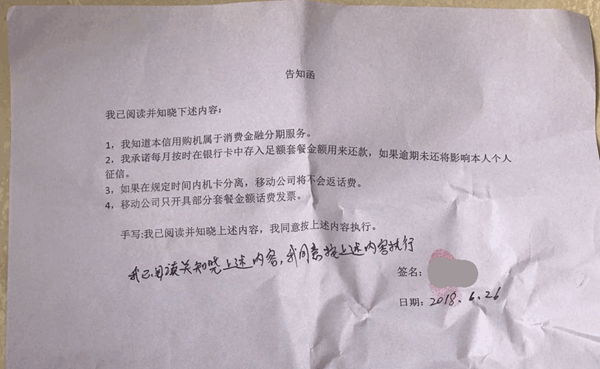 告知函
我已阅读并知晓下述内容：
1，我知道本信用购机属于消费金融分期服务。
2，我承诺每月按时在银行卡中存入足额套餐金额用来还款，如果逾期未还将影响本人个人
征信。
3，如果在规定时间内机卡分离，移动公司将不会返话费。
4，移动公司只开具部分套餐金额话费发票。
手写:我已阅读并知晓上述内容，我同意按上述内容执行。
我已阅读并知晓上述内容，我同意按上述内容执行
签名：
日期：2018.6.26